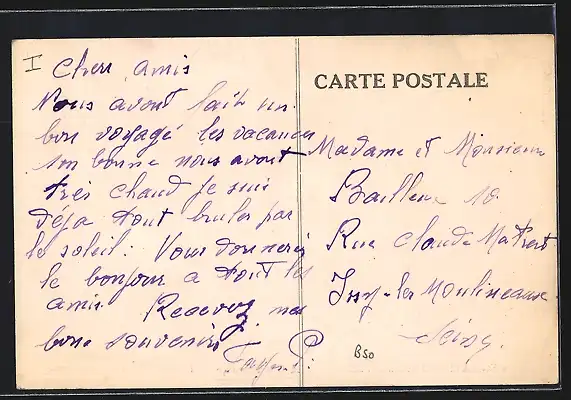 I
Chers amis
Nous avont fait un
bon voyagé les vacances
son bonne nous avont
trés chaud Je suis
Déja tout bruler par
le soleil: Vous donnerez
le bonjour a tout les
amis Recevez nos
bons souvenirs
CARTE POSTALE
Madame et Monsieur
Bailleux 10
Rue Claude Matrat
Issy-les Moulineaux
Seine
B50